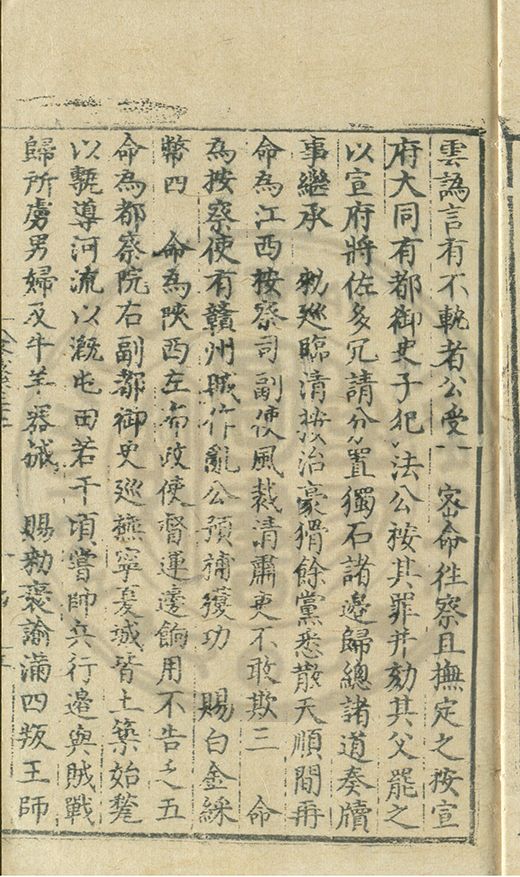 雲譌言有不軌者公受 密命徃察且撫定之按宣
府大同有都御史子犯法公按其罪并劾其父罷之
以宣府將佐多冗請分置獨石諸邉歸總諸道奏牘
事繼承 勑廵臨清按治豪猾餘黨悉散天順間再
命為江西按察司副使風裁清肅吏不敢欺三 命
為按察使有贛州賊作亂公預補獲功 賜白金綵
幣四 命為陝西左布政使督運邊餉用不告乏五
命為都察院右副都御史廵撫寧夏城皆土築始甃
以甎導河流以溉屯田若干頃嘗帥兵行邉與賊戰
歸所虜男婦及牛羊器械 賜勑褒諭滿四叛王師